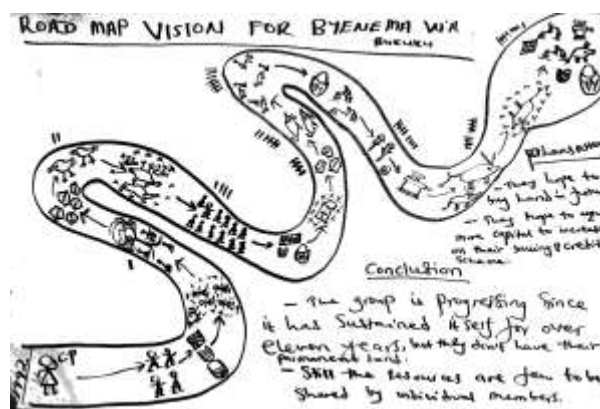 ROAD MAP VISION FOR BYENEMA
CP
They hope to
buy land
They hope to
more capital to
on their saving & credit
Scheme.
Conclusion
- The group is progressing Since
it has Sustained itself for over
eleven years, but they don't have their
permanent land.
- Still the resources are few to be
Shared by individual members.